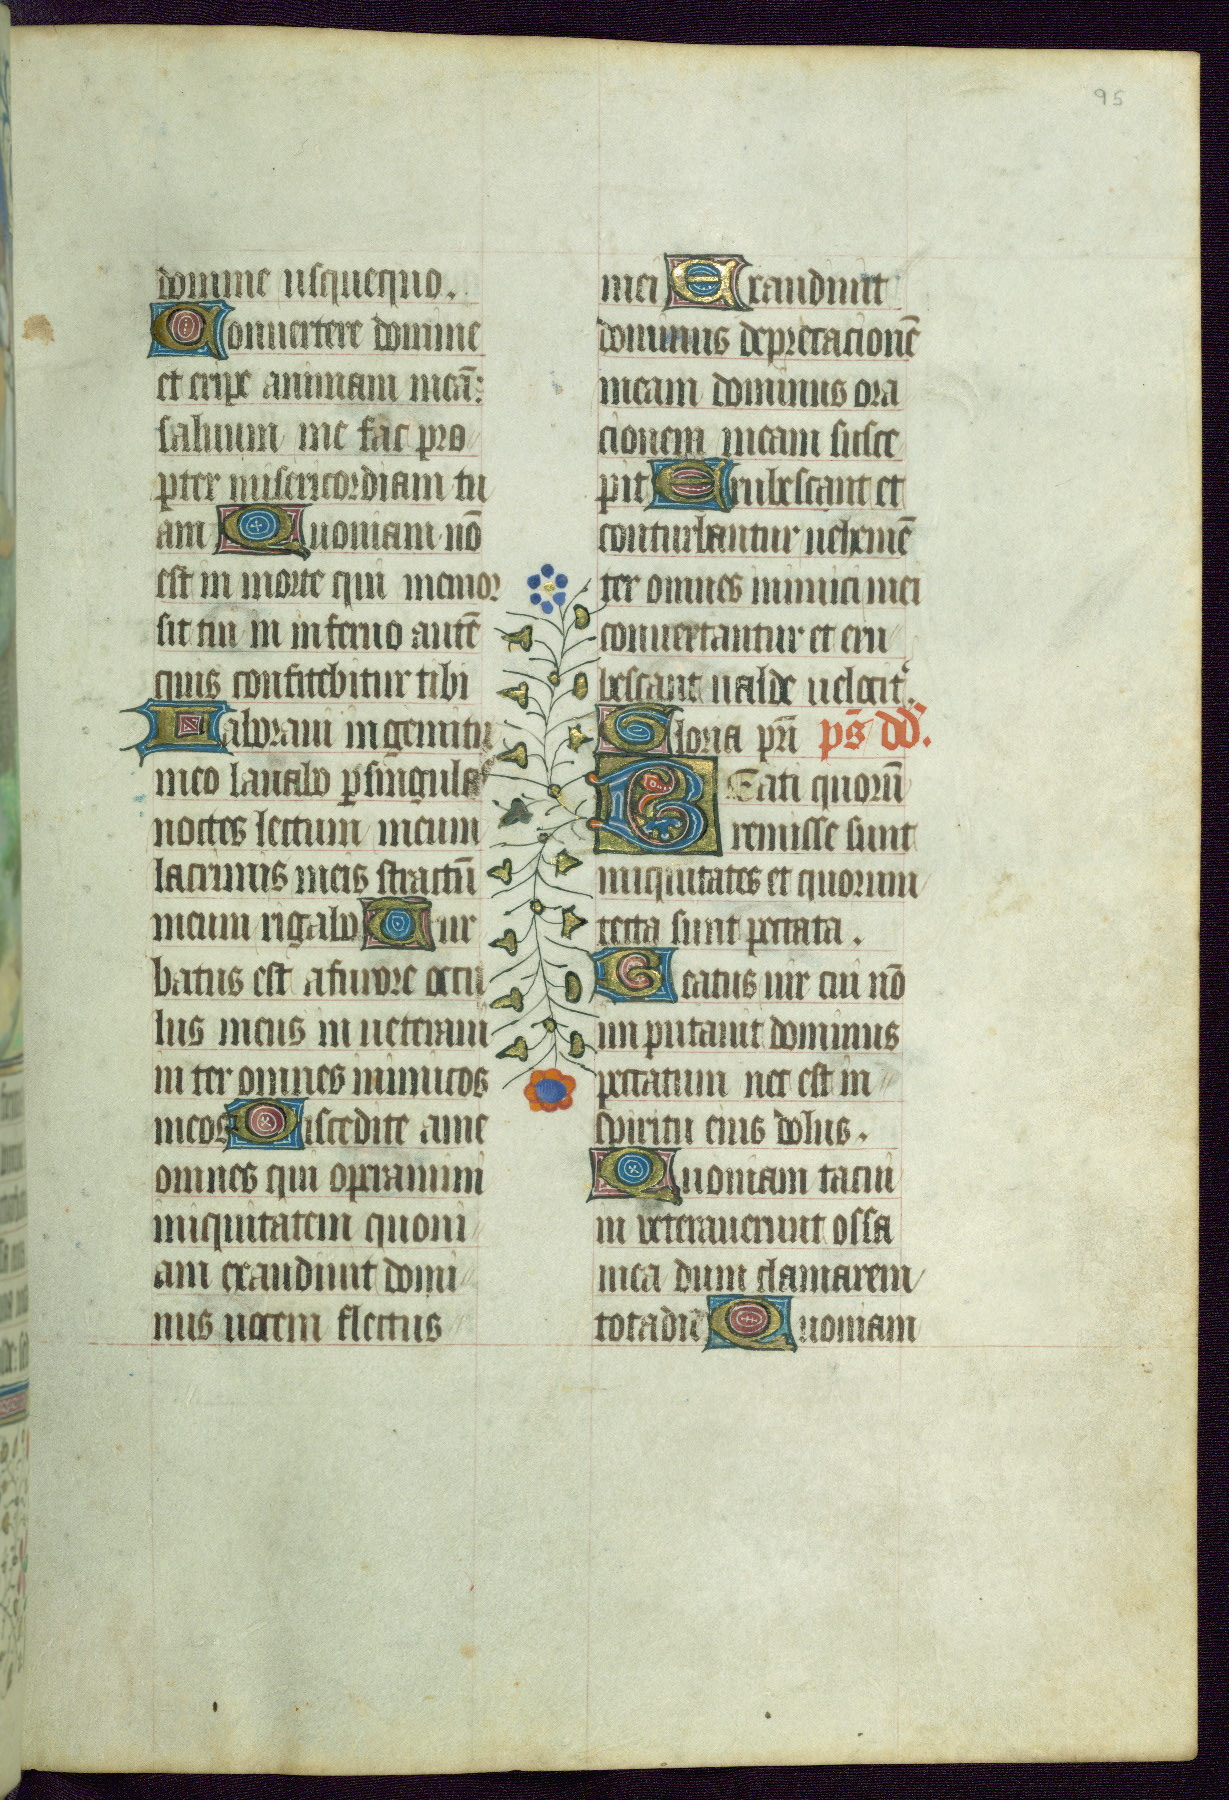 95
domine usquequo.
Conuertere domine
et eripe animam meā:
saluum me fac pro
pter misericordiam tu
am Quoniam nō
est in morte qui memor
sit tui in inferno autē
quis confitebitur tibi
Laboraui in gemitu
meo lauabo ꝑ singulas
noctes lectum meum
lacrimis meis stractū
meum rigabo Tur
batus est a furore occu
lus meus in ueteraui
in ter omnes inimicos
meos Discedite a me
omnes qui operamini
iniquitatem quoni
am exaudiuit domi
nus uocem fletus
mei Exaudiuit
dominus deprecacionē
meam dominus ora
cionem meam susce
pit Erubescant et
conturbantur uehemē
ter omnes inimici mei
conuertantur et eru
bescant ualde uelocit᷑.
Gloria pr̄i p̄s dd̄.
BEati quorū
remisse sunt
iniquitates et quorum
tecta sunt peccata.
Beatus uir cui nō
im putauit dominus
peccatum nec est in
spiritu eius dolus.
Quoniam tacui
in veterauerunt ossa
mea dum clamarem
tota die Quoniam